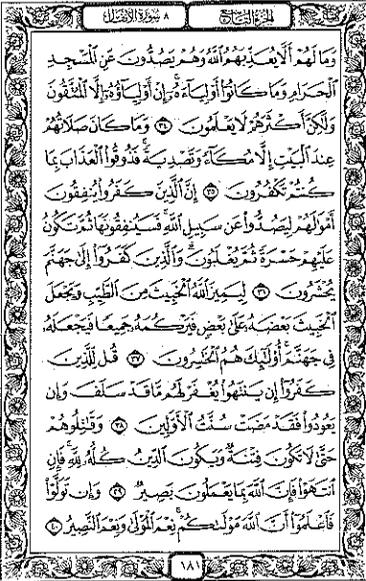 الجزء التاسع
٨ سورة الأنفال
وَمَا لَهُمْ أَلَّا يُعَذِّبَهُمُ ٱللَّهُ وَهُمْ يَصُدُّونَ عَنِ ٱلْمَسْجِدِ
ٱلْحَرَامِ وَمَا كَانُوٓا۟ أَوْلِيَآءَهُۥٓ ۚ إِنْ أَوْلِيَآؤُهُۥٓ إِلَّا ٱلْمُتَّقُونَ
وَلَـٰكِنَّ أَكْثَرَهُمْ لَا يَعْلَمُونَ ٣٤ وَمَا كَانَ صَلَاتُهُمْ
عِندَ ٱلْبَيْتِ إِلَّا مُكَآءً وَتَصْدِيَةً ۚ فَذُوقُوا۟ ٱلْعَذَابَ بِمَا
كُنتُمْ تَكْفُرُونَ ٣٥ إِنَّ ٱلَّذِينَ كَفَرُوا۟ يُنفِقُونَ
أَمْوَٰلَهُمْ لِيَصُدُّوا۟ عَن سَبِيلِ ٱللَّهِ ۚ فَسَيُنفِقُونَهَا ثُمَّ تَكُونُ
عَلَيْهِمْ حَسْرَةً ثُمَّ يُغْلَبُونَ ۗ وَٱلَّذِينَ كَفَرُوٓا۟ إِلَىٰ جَهَنَّمَ
يُحْشَرُونَ ٣٦ لِيَمِيزَ ٱللَّهُ ٱلْخَبِيثَ مِنَ ٱلطَّيِّبِ وَيَجْعَلَ
ٱلْخَبِيثَ بَعْضَهُۥ عَلَىٰ بَعْضٍ فَيَرْكُمَهُۥ جَمِيعًا فَيَجْعَلَهُۥ
فِى جَهَنَّمَ ۚ أُو۟لَـٰٓئِكَ هُمُ ٱلْخَـٰسِرُونَ ٣٧ قُل لِّلَّذِينَ
كَفَرُوٓا۟ إِن يَنتَهُوا۟ يُغْفَرْ لَهُم مَّا قَدْ سَلَفَ وَإِن
يَعُودُوا۟ فَقَدْ مَضَتْ سُنَّتُ ٱلْأَوَّلِينَ ٣٨ وَقَـٰتِلُوهُمْ
حَتَّىٰ لَا تَكُونَ فِتْنَةٌ وَيَكُونَ ٱلدِّينُ كُلُّهُۥ لِلَّهِ ۚ فَإِنِ
ٱنتَهَوْا۟ فَإِنَّ ٱللَّهَ بِمَا يَعْمَلُونَ بَصِيرٌ ٣٩ وَإِن تَوَلَّوْا۟
فَٱعْلَمُوٓا۟ أَنَّ ٱللَّهَ مَوْلَىٰكُمْ ۚ نِعْمَ ٱلْمَوْلَىٰ وَنِعْمَ ٱلنَّصِيرُ ٤٠
١٨١